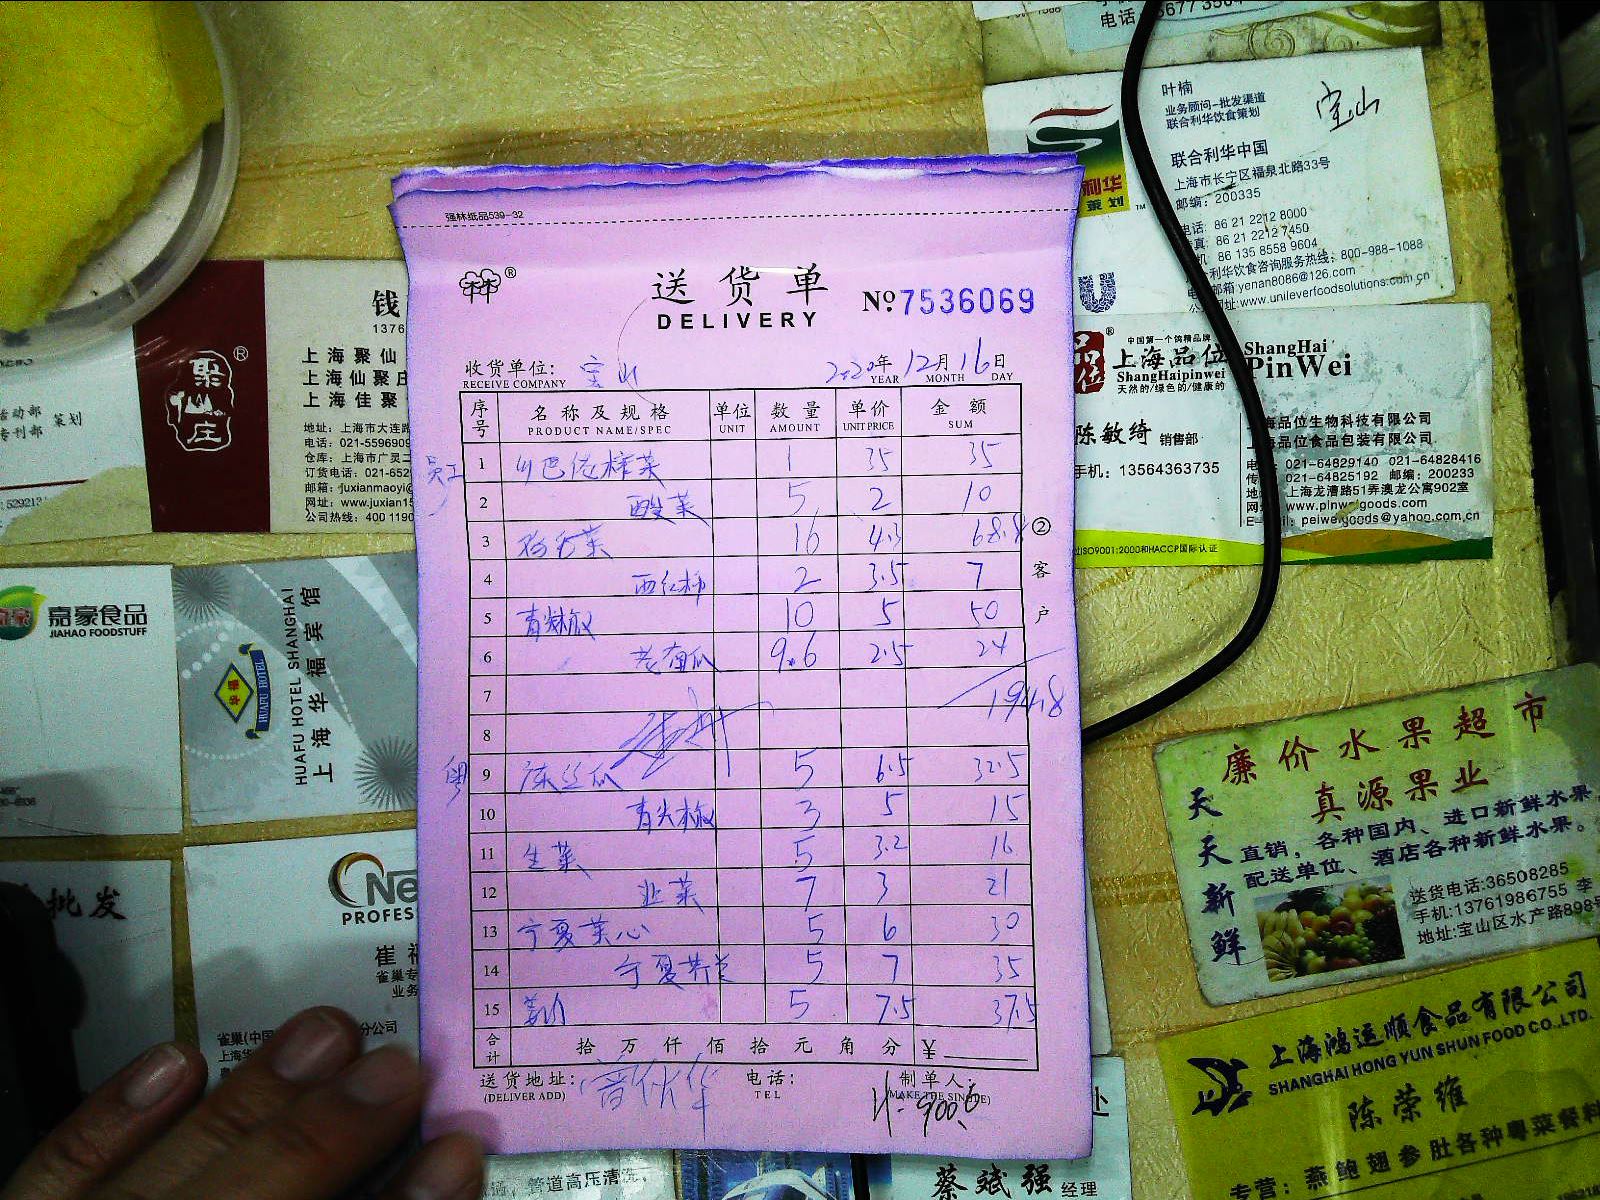 强林纸品539-32
送货单
DELIVERY
№7536069
收货单位: 宝山 2020年 12月 16日
RECEIVE COMPANY YEAR MONTH DAY
序号 名称及规格 单位 数量 单价 金额
PRODUCT NAME/SPEC UNIT AMOUNT UNIT PRICE SUM
员工 1 1 35 35
2 酸菜 5 2 10
3 16 4.3 68.8
4 西红柿 2 3.5 7
5 青尖椒 10 5 50
6 老南瓜 9.6 2.5 24
7 194.8
8
粤 9 丝瓜 5 6.5 32.5
10 青尖椒 3 5 15
11 生菜 5 3.2 16
12 韭菜 7 3 21
13 宁夏菜心 5 6 30
14 宁夏芥兰 5 7 35
15 5 7.5 37.5
合计 拾万仟佰拾元角分 ¥
送货地址: 电话: 制单人:
(DELIVER ADD) TEL (MAKE THE SINGLE)
②客户
叶楠
业务顾问-批发渠道
联合利华饮食策划
宝山
联合利华中国
上海市长宁区福泉北路33号
邮编: 200335
电话: 86 21 2212 8000
86 21 2212 7450
86 135 8558 9604
利华饮食咨询服务热线: 800-988-1088
邮箱 yenan8086@126.com
www.unileverfoodsolutions.com.cn
中国第一个鸽精品牌
上海品位
ShangHaipinwei
天然的/绿色的/健康的
ShangHai
PinWei
海品位生物科技有限公司
海品位食品包装有限公司
陈敏绮 销售部
手机: 13564363735
021-64829140 021-64828416
021-64825192 邮编: 200233
上海龙漕路51弄澳龙公寓902室
peiweigoods@yahoo.com.cn
ISO9001:2000和HACCP国际认证
廉价水果超市
真源果业
天天新鲜
直销，各种国内、进口新鲜水果
配送单位、酒店各种新鲜水果。
送货电话:36508285
手机:13761986755 李
地址:宝山区水产路898号
上海鸿运顺食品有限公司
SHANGHAI HONG YUN SHUN FOOD CO.,LTD.
陈荣维
专营: 燕鲍翅参肚各种粤菜餐料
聚仙庄
钱
1376
上海聚仙
上海仙聚庄
上海佳聚
地址: 上海市大连路
电话: 021-5596909
仓库: 上海市广灵二
订货电话: 021-652
邮箱: juxianmaoyi@
网址: www.juxian15
公司热线: 400 1190
活动部 策划
专利部
嘉豪食品
JIAHAO FOODSTUFF
华福
HUAFU HOTEL
HUAFU HOTEL SHANGHAI
上海华福宾馆
批发
Ne
PROFES
崔
雀巢专
业务
雀巢(中国
分公司
管道高压清洗
蔡斌强 经理